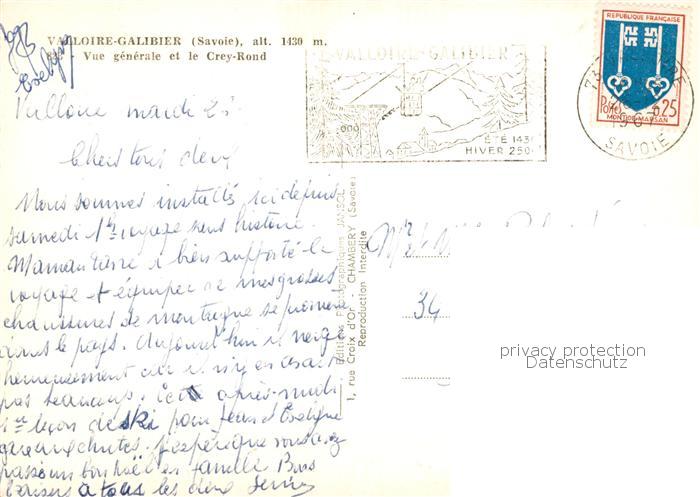 VALLOIRE-GALIBIER (Savoie), alt. 1430 m.
- Vue générale et le Crey-Rond
Evelyne
Valloire mardi 2
Chers tous deux
Nous sommes installés ici depuis
samedi 1h voyage sans histoire.
a bien supporté le
voyage et équipée de mes grosses
chaussures de montagne se promène
dans le pays. Aujourd'hui il neige
heureusement car il n'y en avait
pas beaucoup. Cette après-midi
1ère leçon de ski pour Jean et Evelyne
gare aux chutes. J'espère que vous avez
passé un bon Noël en famille Bons
baisers à tous les deux
VALLOIRE-GALIBIER
ÉTÉ 1430
HIVER 250
REPUBLIQUE FRANÇAISE
Postes 0,25
MONT-DE-MARSAN
SAVOIE
Editions Photographiques JANSOL
1, rue Croix d'Or - CHAMBERY (Savoie)
Reproduction Interdite
34
privacy protection
Datenschutz